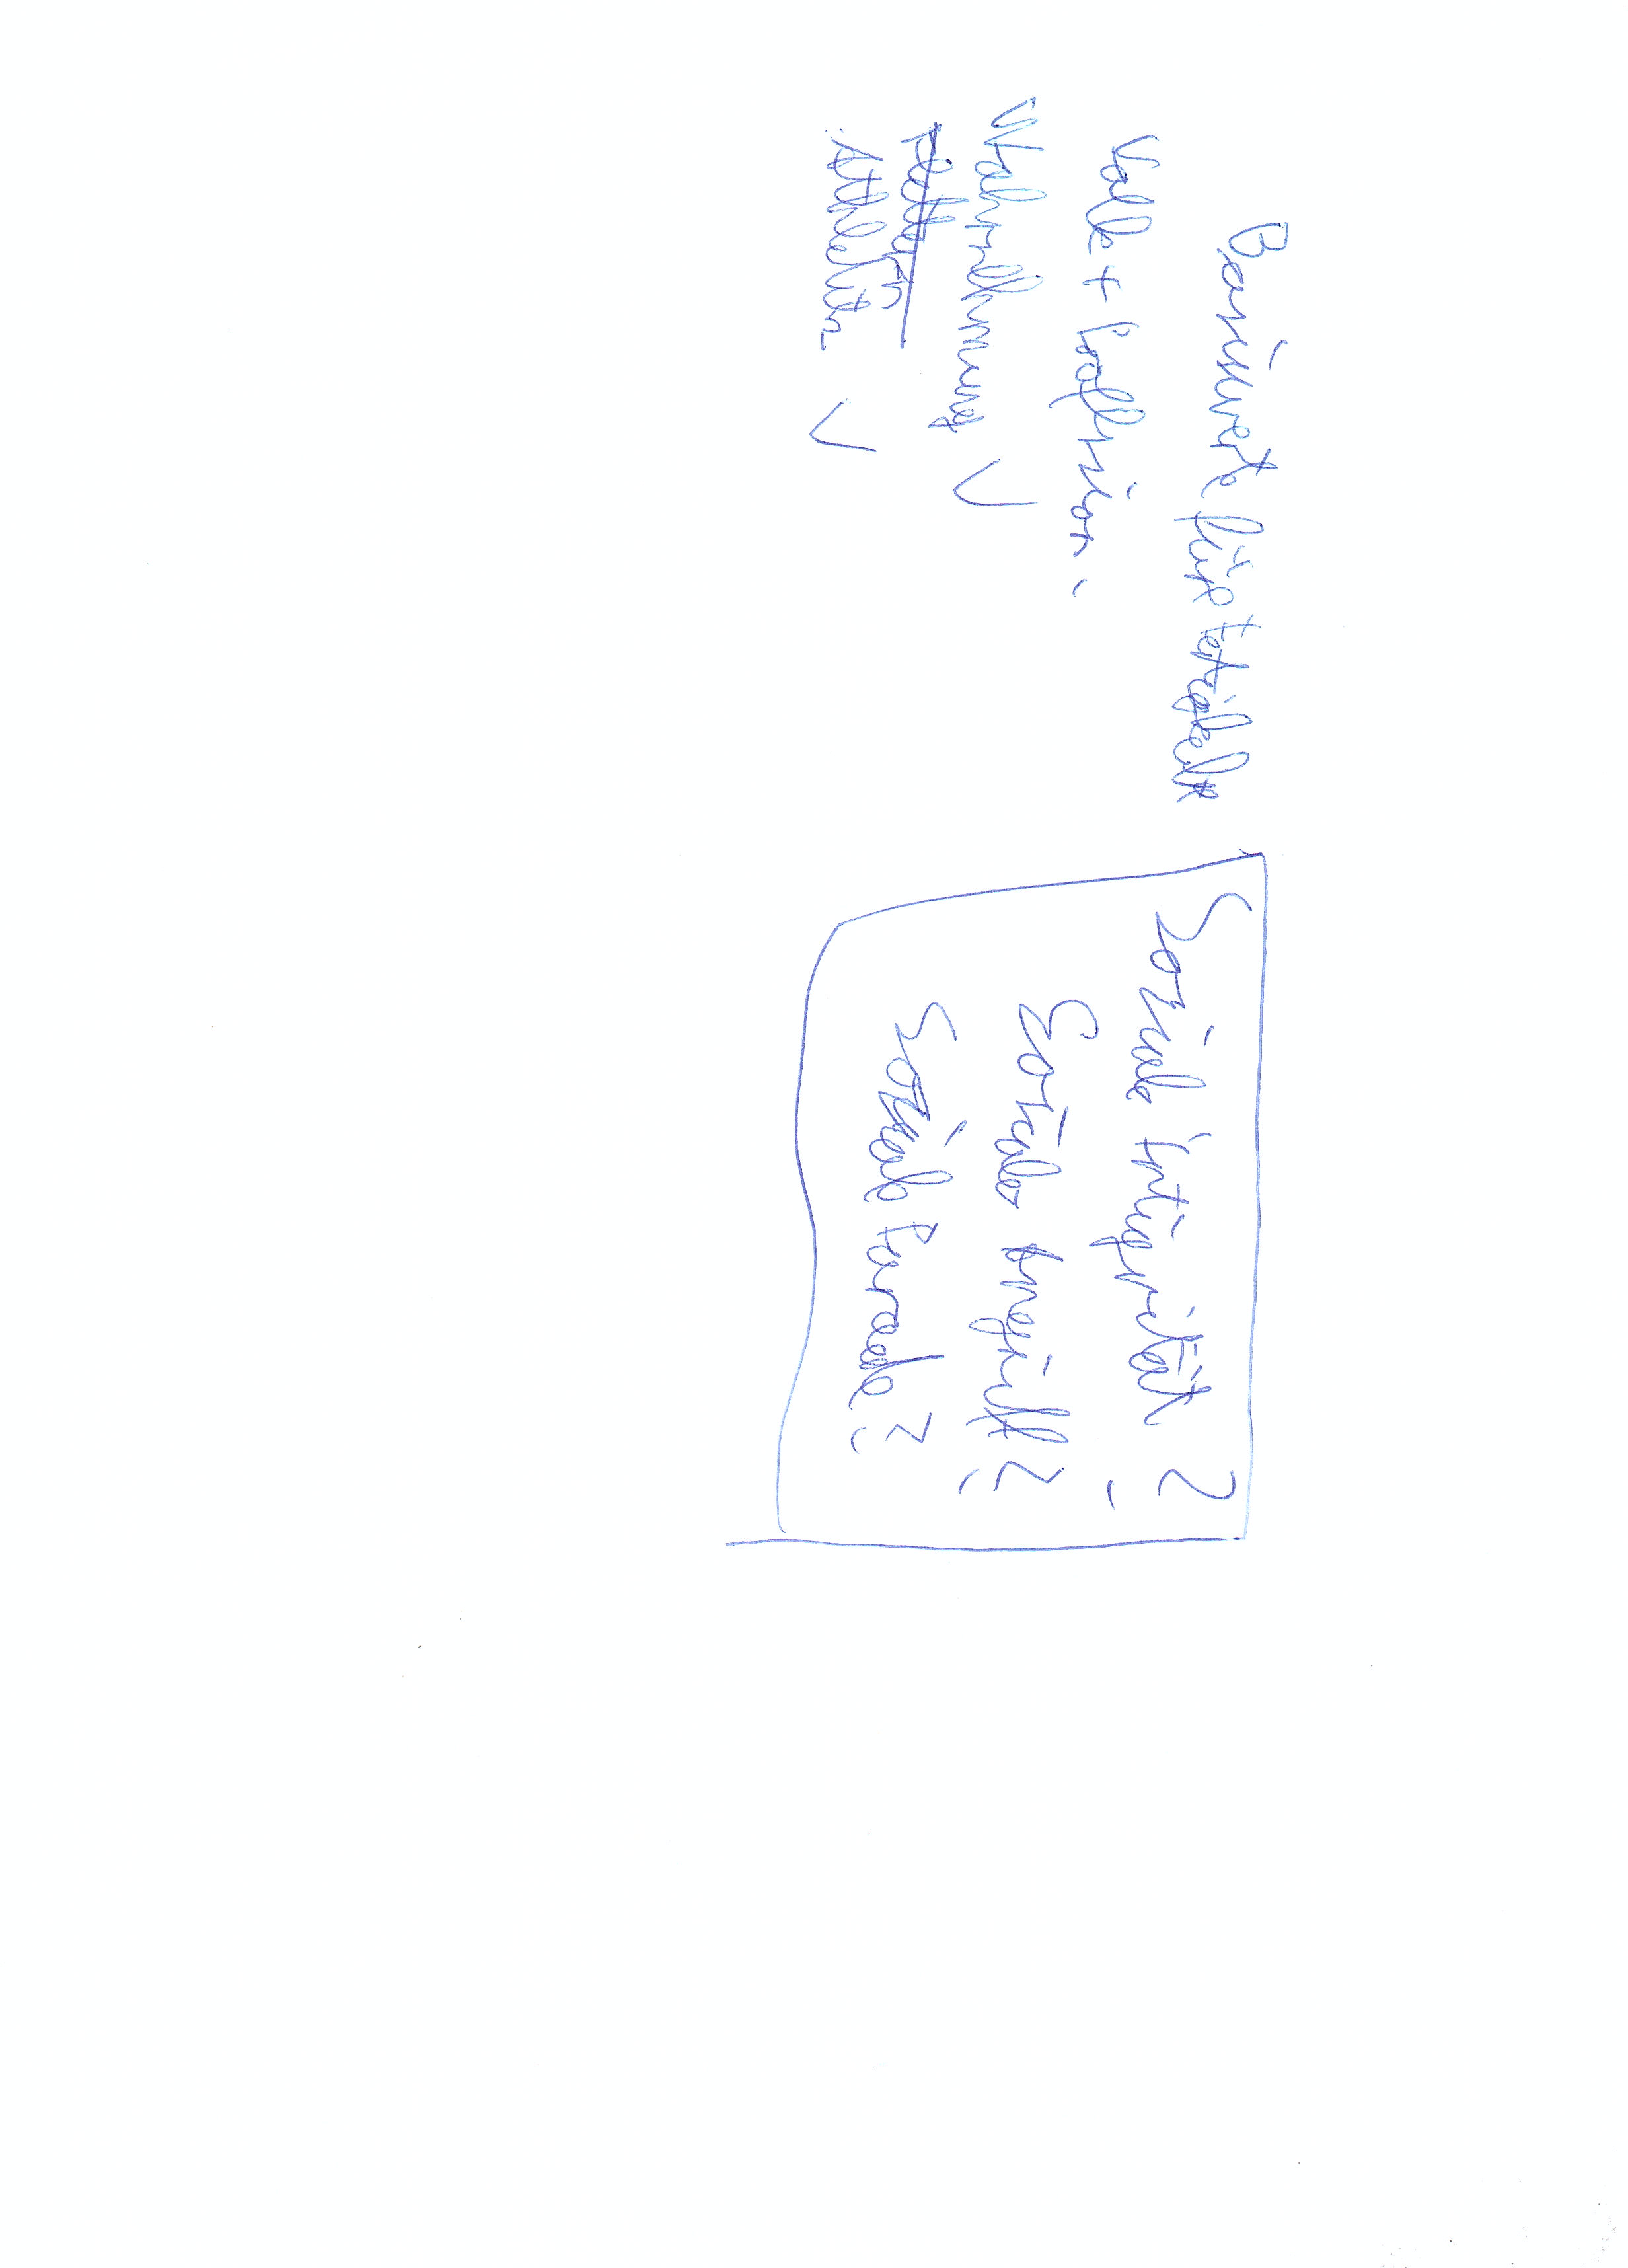 Basiswerte für Fertigkeit
Volk + Profession.
Wahrnehmung ✓
Klettern
Athletik ✓
Soziale Integrität ?
Soziale Angriff ?
Soziale Parade ?